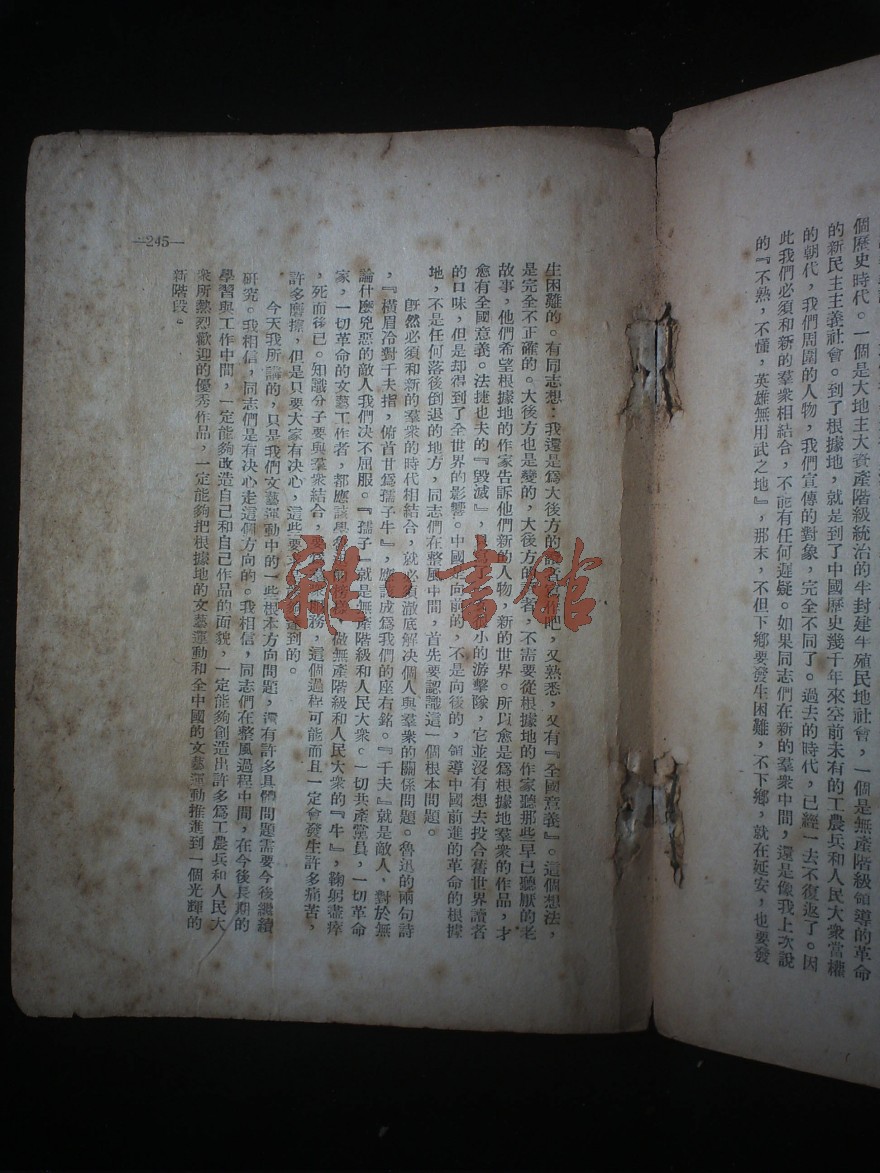 個歷史時代。一個是大地主大資產階級統治的半封建半殖民地社會，一個是無產階級領導的革命
的新民主主義社會。到了根據地，就是到了中國歷史幾千年來空前未有的工農兵和人民大衆當權
的朝代，我們周圍的人物，我們宣傳的對象，完全不同了。過去的時代，已經一去不復返了。因
此我們必須和新的羣衆相結合，不能有任何遲疑。如果同志們在新的羣衆中間，還是像我上次說
的『不熟，不懂，英雄無用武之地』，那末，不但下鄉要發生困難，不下鄉，就在延安，也要發
生困難的。有同志想：我還是爲大後方的讀者寫作吧，又熟悉，又有『全國意義』。這個想法，
是完全不正確的。大後方也是變的，大後方的讀者，不需要從根據地的作家聽那些早已聽厭的老
故事，他們希望根據地的作家告訴他們新的人物，新的世界。所以愈是爲根據地羣衆的作品，才
愈有全國意義。法捷也夫的『毀滅』，小的游擊隊，它並沒有想去投合舊世界讀者
的口味，但是却得到了全世界的影響。中國是向前的，不是向後的，領導中國前進的革命的根據
地，不是任何落後倒退的地方，同志們在整風中間，首先要認識這一個根本問題。
既然必須和新的羣衆的時代相結合，就必須澈底解決個人與羣衆的關係問題。魯迅的兩句詩
，『橫眉冷對千夫指，俯首甘爲孺子牛』，應該成爲我們的座右銘。『千夫』就是敵人，對於無
論什麼兇惡的敵人我們決不屈服。『孺子』就是無產階級和人民大衆。一切共產黨員，一切革命
家，一切革命的文藝工作者，都應該學魯迅的榜樣，做無產階級和人民大衆的『牛』，鞠躬盡瘁
，死而後已。知識分子要與羣衆結合，服務，這個過程可能而且一定會發生許多痛苦，
許多磨擦，但是只要大家有決心，這些要求達到的。
今天我所講的，只是我們文藝運動中的一些根本方向問題，還有許多具體問題需要今後繼續
研究。我相信，同志們是有決心走這個方向的。我相信，同志們在整風過程中間，在今後長期的
學習與工作中間，一定能夠改造自己和自己作品的面貌，一定能夠創造出許多爲工農兵和人民大
衆所熱烈歡迎的優秀作品，一定能夠把根據地的文藝運動和全中國的文藝運動推進到一個光輝的
新階段。
—245—
雜·書館